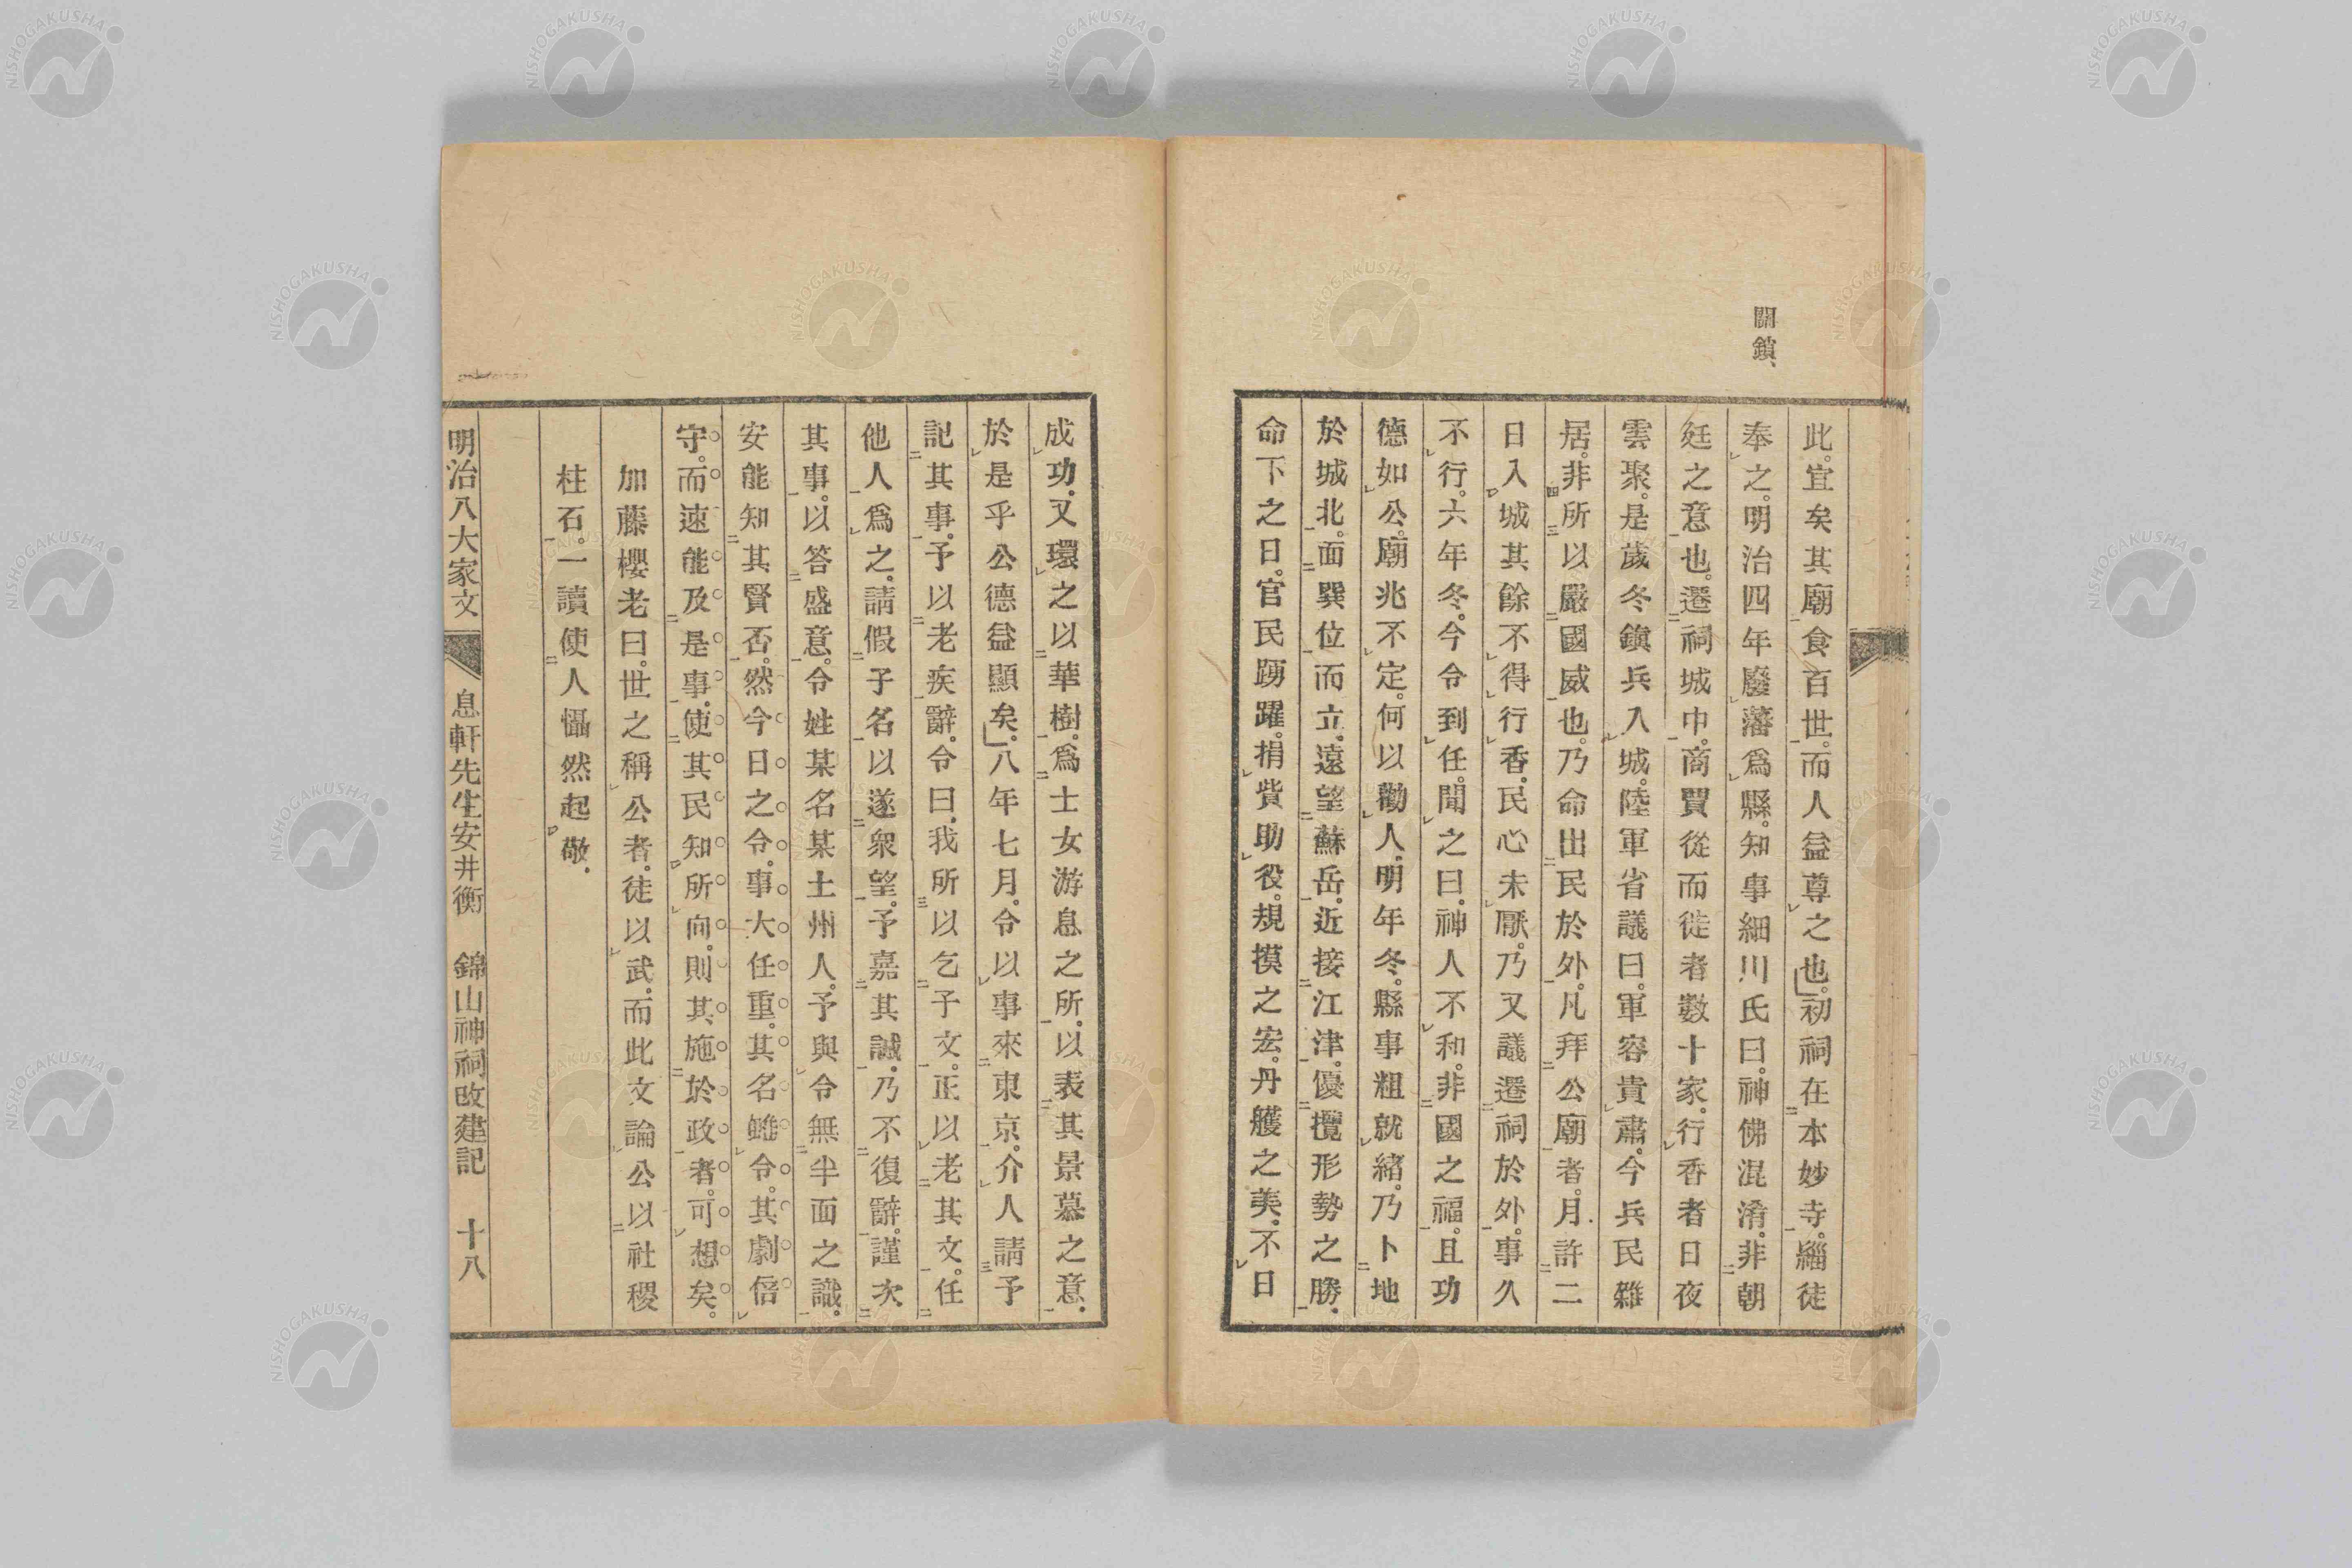 關鎖、
此。宜矣其廟食百世。而人益尊之也。初祠在本妙寺。緇徒
奉之。明治四年廢藩爲縣。知事細川氏曰。神佛混淆。非朝
廷之意也。遷祠城中。商賈從而徙者數十家。行香者日夜
雲聚。是歲冬鎭兵入城。陸軍省議曰。軍容貴肅。今兵民雜
居。非所以嚴國威也。乃命出民於外。凡拜公廟者。月許二
日入城其餘不得行香。民心未厭。乃又議遷祠於外。事久
不行。六年冬。今令到任。聞之曰。神人不和。非國之福。且功
德如公。廟兆不定。何以勸人。明年冬。縣事粗就緒。乃卜地
於城北。面巽位而立。遠望蘇岳。近接江津。優攬形勢之勝。
命下之日。官民踴躍。捐貲助役。規摸之宏。丹艧之美。不日
成功。又環之以華樹。爲士女游息之所。以表其景慕之意。
於是乎公德益顯矣。八年七月。令以事來東京。介人請予
記其事。予以老疾辭。令曰。我所以乞子文。正以老其文。任
他人爲之。請假子名以遂衆望。予嘉其誠。乃不復辭。謹次
其事。以答盛意。令姓某名某土州人。予與令無半面之識。
安能知其賢否。然今日之令。事大任重。其名雖令。其劇倍
守。而速能及是事。使其民知所向。則其施於政者。可想矣。
加藤櫻老曰。世之稱公者。徒以武。而此文論公以社稷
柱石。一讀使人懾然起敬。
明治八大家文 息軒先生安井衡 錦山神祠改建記 十八
NISHOGAKUSHA